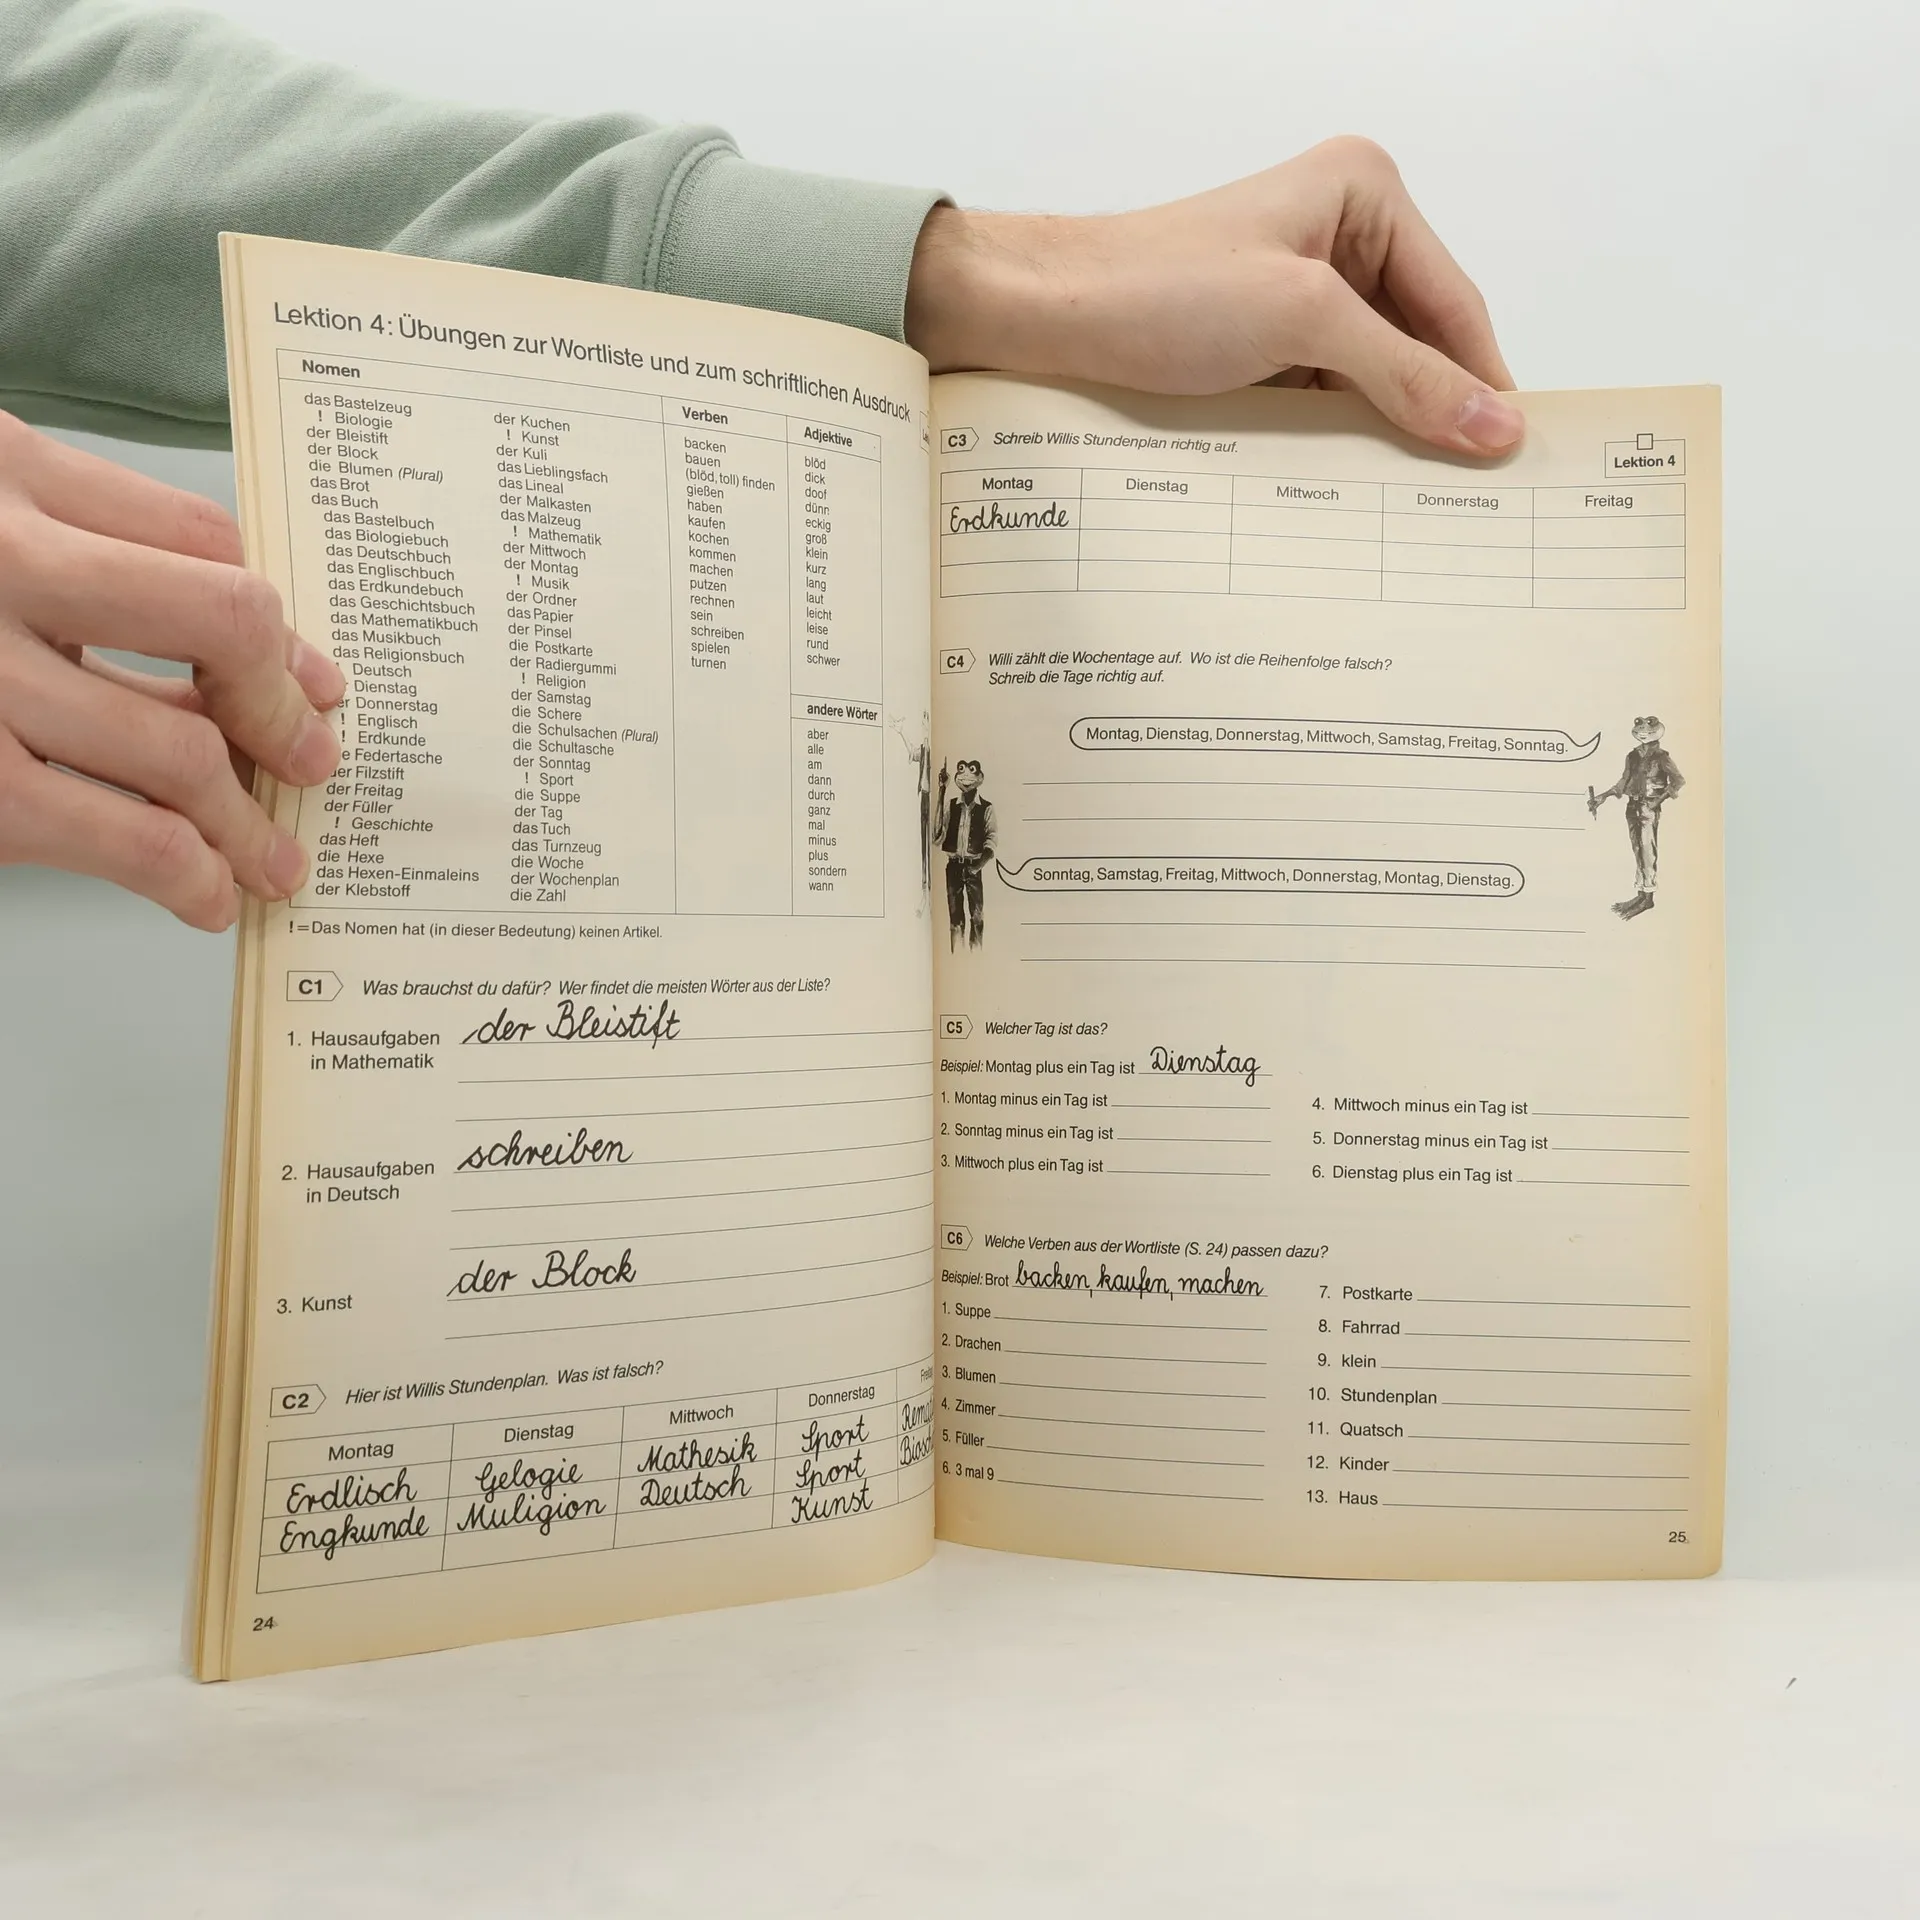 Lektion 4: Übungen zur Wortliste und zum schriftlichen Ausdruck
Nomen
das Bastelzeug
! Biologie
der Bleistift
der Block
die Blumen (Plural)
das Brot
das Buch
das Bastelbuch
das Biologiebuch
das Deutschbuch
das Englischbuch
das Erdkundebuch
das Geschichtsbuch
das Mathematikbuch
das Musikbuch
das Religionsbuch
! Deutsch
Dienstag
Donnerstag
! Englisch
! Erdkunde
Federtasche
der Filzstift
der Freitag
der Füller
! Geschichte
das Heft
die Hexe
das Hexen-Einmaleins
der Klebstoff
der Kuchen
! Kunst
der Kuli
das Lieblingsfach
das Lineal
der Malkasten
das Malzeug
! Mathematik
der Mittwoch
der Montag
! Musik
der Ordner
das Papier
der Pinsel
die Postkarte
der Radiergummi
! Religion
der Samstag
die Schere
die Schulsachen (Plural)
die Schultasche
der Sonntag
! Sport
die Suppe
der Tag
das Tuch
das Turnzeug
die Woche
der Wochenplan
die Zahl
Verben
backen
bauen
(blöd, toll) finden
gießen
haben
kaufen
kochen
kommen
machen
putzen
rechnen
sein
schreiben
spielen
turnen
Adjektive
blöd
dick
doof
dünn
eckig
groß
klein
kurz
lang
laut
leicht
leise
rund
schwer
andere Wörter
aber
alle
am
dann
durch
ganz
mal
minus
plus
sondern
wann
! = Das Nomen hat (in dieser Bedeutung) keinen Artikel.
C1 Was brauchst du dafür? Wer findet die meisten Wörter aus der Liste?
1. Hausaufgaben der Bleistift
in Mathematik
2. Hausaufgaben schreiben
in Deutsch
3. Kunst der Block
C2 Hier ist Willis Stundenplan. Was ist falsch?
Montag Dienstag Mittwoch Donnerstag
Erdlisch Gelogie Mathesik Sport
Engkunde Muligion Deutsch Sport
Kunst
24
C3 Schreib Willis Stundenplan richtig auf.
Lektion 4
Montag Dienstag Mittwoch Donnerstag Freitag
Erdkunde
C4 Willi zählt die Wochentage auf. Wo ist die Reihenfolge falsch?
Schreib die Tage richtig auf.
Montag, Dienstag, Donnerstag, Mittwoch, Samstag, Freitag, Sonntag.
Sonntag, Samstag, Freitag, Mittwoch, Donnerstag, Montag, Dienstag.
C5 Welcher Tag ist das?
Beispiel: Montag plus ein Tag ist Dienstag
1. Montag minus ein Tag ist
2. Sonntag minus ein Tag ist
3. Mittwoch plus ein Tag ist
4. Mittwoch minus ein Tag ist
5. Donnerstag minus ein Tag ist
6. Dienstag plus ein Tag ist
C6 Welche Verben aus der Wortliste (S. 24) passen dazu?
Beispiel: Brot backen, kaufen, machen
1. Suppe
2. Drachen
3. Blumen
4. Zimmer
5. Füller
6. 3 mal 9
7. Postkarte
8. Fahrrad
9. klein
10. Stundenplan
11. Quatsch
12. Kinder
13. Haus
25